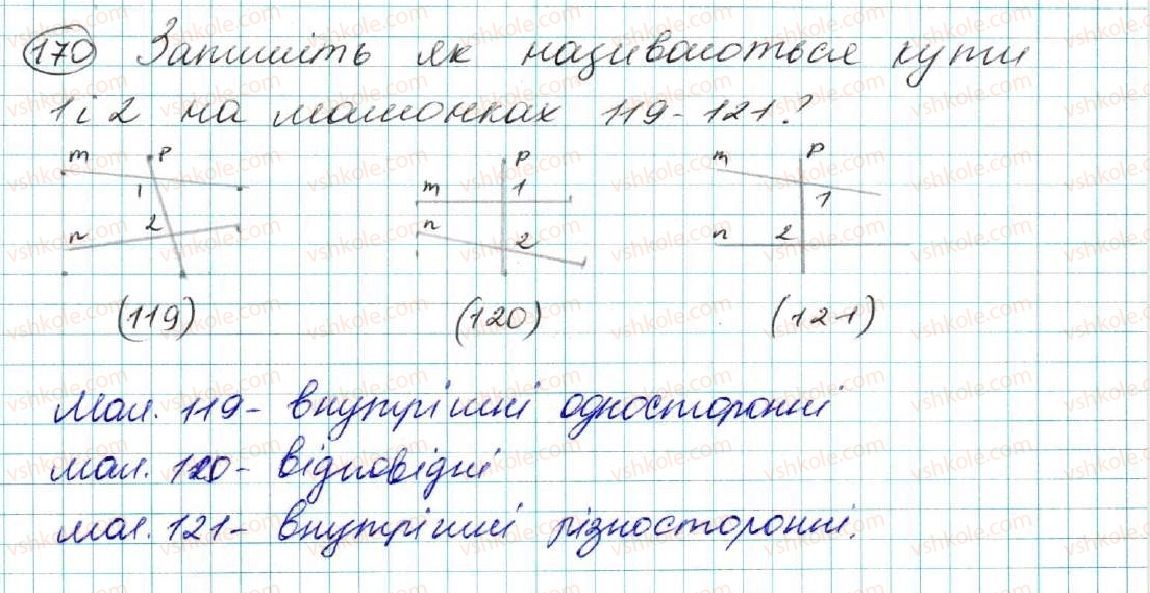 170 Запишіть як називаються кути
1 і 2 на малюнках 119-121?
m p
1
2
n
(119)
p
m 1
n 2
(120)
m p
1
n 2
(121)
Мал. 119- внутрішні односторонні
мал. 120- відповідні
мал. 121- внутрішні різносторонні.